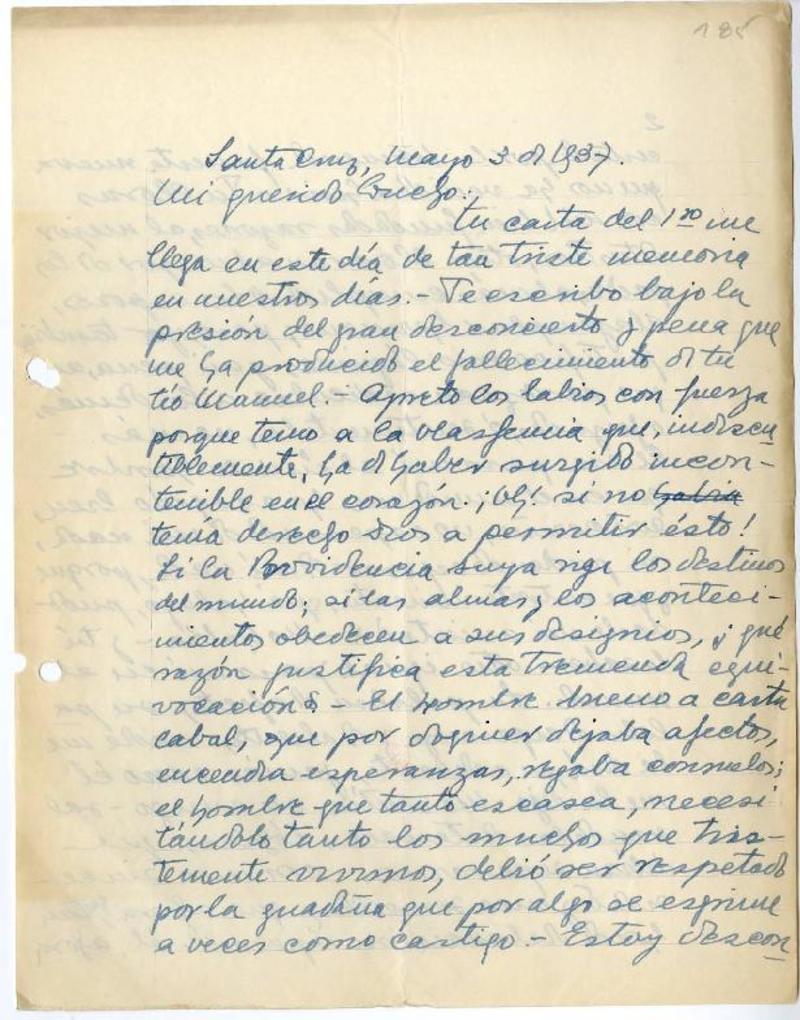 185
Santa Cruz, Mayo 3 de 1937.
Mi querido Cuchо:,
Tu carta del 1ro me
llega en este día de tan triste memoria
en nuestros días.- Te escribo bajo la
presión del gran desconcierto y pena que
me ha producido el fallecimiento de tu
tío Manuel.- Apreto los labios con fuerza
porque temo a la blasfemia que, indiscu
tiblemente, ha de haber surgido incon-
tenible en el corazón. ¡Oh! si no habia
tenía derecho Dios a permitir ésto!
Si la Providencia suya rige los destinos
del mundo; si las almas y los aconteci-
mientos obedecen a sus designios, ¿qué
razón justifica esta tremenda equi-
vocación? - El hombre bueno a carta
cabal, que por doquier dejaba afectos,
encendia esperanzas, regaba consuelos;
el hombre que tanto escasea, necesi-
tándolo tanto los muchos que tris-
temente vivimos, debió ser respetado
por la guadaña que por algo se esgrime
a veces como castigo.- Estoy descon